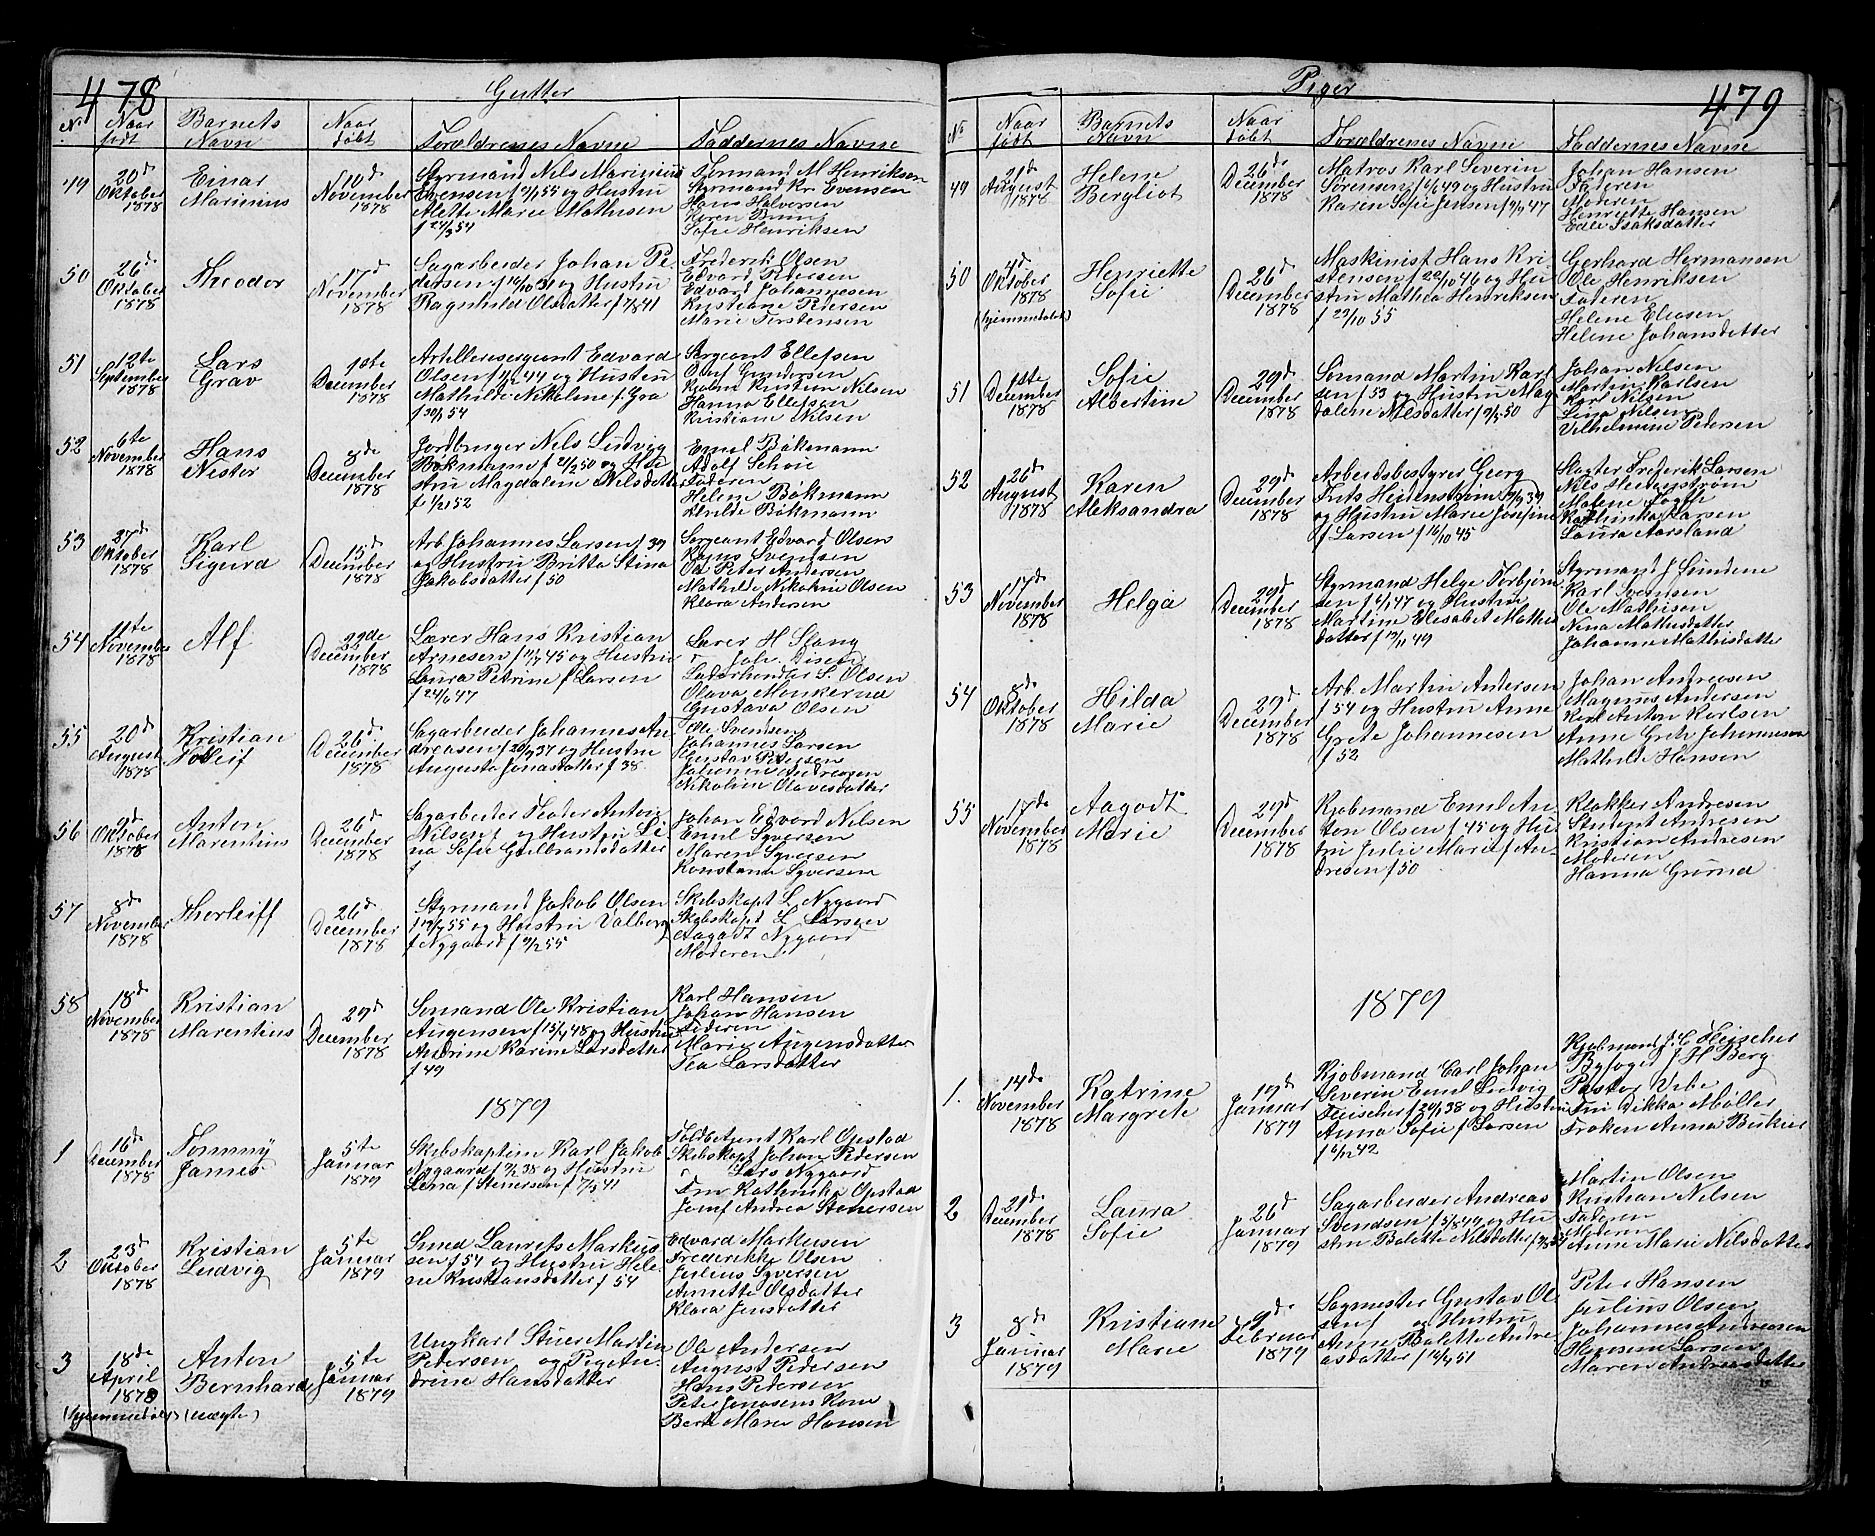 478
Gutter
No
Naar født
Barnets Navn
Naar døbt
Forældrenes Navne
Faddernes Navne
49
20d Oktober 1878
Einar Marinius
10d November 1878
Styrmand Nils Marinius
Evensen f 55 og Hustru
Mette Marie Mathisen
f 54
Formand M Henriksen
Styrmand Kr. Evensen
Hans Halvorsen
Karen Bruun
Sofie Henriksen
50
26d Oktober 1878
Theodor
17d November 1878
Sagarbeider Johan Pe
dersen f 31 og Hustru
Ragnhild Olsdatter f 41
Frederik Olsen
Edvard Pedersen
Edvard Johannesen
Kristiane Pedersen
Marie Torstensen
51
12te September 1878
Lars Grav
1ste December 1878
Artillerisergeant Edvard
Olsen f 44 og Hustru
Mathilde Nikoline f
f 30/1 54
Sergeant Ellefsen
Oluf Gundersen
Kristian Nilsen
Hanna Ellefsen
Kristiane Nilsen
52
6te November 1878
Hans Nestor
8de December 1878
Jordbruger Nils Ludvig
Bökmann f 50 og Hu
stru Magdalene Nilsdatter
f 52
Emil Bökmann
Adolf
Faderen
Helene Bökmann
Bökmann
53
27d Oktober 1878
Karl Sigurd
15d December 1878
Arb Johannes Larsen f 39
og Hustru Britta Stina
Jakobsdatter f 50
Sergeant Edvard Olsen
Hans Svendsen
Ole Peter Andersen
Mathilde Nikoline Olsen
Klara Andersen
54
11te November 1878
Alf
22de December 1878
Lærer Hans Kristian
Arnesen f 45 og Hustru
Laura Petrine f Larsen
f 24/6 47
Lærer H Stang
Olsen
Olava
Gustava Olsen
55
20d August 1878
Kristian
26d December 1878
Sagarbeider Johannes An
dreasen f 37 og Hustru
Augusta Jonasdatter f 38
Ole Svendsen
Johannes Larsen
Gustav Petersen
Johanne Andreasen
Nikoline Olavesdatter
56
Oktober 1878
Anton Marentius
26d December 1878
Sagarbeider Anton
Nilsen f og Hustru Li
na Sofie Gulbrandsdatter
f
Johan Edvard Nilsen
Emil Syversen
Maren Syversen
Konstance Syversen
57
8de November 1878
Thorleiff
26d December 1878
Styrmand Jakob Olsen
f 55 og Hustru Valborg
f Nygaard f 55
Skibskapt L Nygaard
Skibskapt L Larsen
Aagodt Nygaard
Moderen
58
18d November 1878
Kristian Marentius
29d December 1878
Sømand Ole Kristian
Augensen f 48 og Hustru
Andrine Karine Larsdatter
f 49
Karl Hansen
Johan Hansen
Faderen
Marie Augensdatter
Tea Larsdatter
1879
1
16d December 1878
Tommy James
5te Januar 1879
Skibskaptein Karl Jakob
Nygaard f 38 og Hustru
Lena f Stenersen f 41
Toldbetjent Karl Opstad
Skibskapt Johan Pedersen
Lars Nygaard
Fru Kathinka Opstad
Jomf Andrea Stenersen
2
23d Oktober 1878
Kristian Ludvig
5te Januar 1879
Smed Laurits Markus
sen f 54 og Hustru Hele
ne Kristiansdatter f 54
Edvard Markusen
Frederikke Olsen
Julius Syversen
Annette Olsdatter
Klara Jensdatter
3
18de April 1878
(hjemmedøbt)
Anton Bernhard
(uægte)
5te Januar 1879
Ungkarl Martin
Pedersen og Pige An
drine Hansdatter
Ole Andersen
August Pedersen
Hans Pedersen
Peter Jonasens Kone
Marie Hansen
479
Piger
No
Naar født
Barnets Navn
Naar døbt
Forældrenes Navne
Faddernes Navne
49
21d August 1878
Helene Bergliot
26d December 1878
Matros Karl Severin
Sørensen f 49 og Hustru
Karen Sofie Jensen f 47
Johan Hansen
Faderen
Moderen
Henriette Hansen
Edle Isaksdatter
50
4d Oktober 1878
(hjemmedøbt)
Henriette Sofie
26d December 1878
Maskinist Hans Kri
stensen f 22/10 46 og Hu
stru Mathea Henriksen
f 29/10 55
Gerhard Hermansen
Ole Henriksen
Faderen
Helene Eliasen
Helene Johansdatter
51
1ste December 1878
Sofie Albertine
29d December 1878
Sømand Martin Karl
sen f 53 og Hustru Mag
dalene Nilsdatter f 50
Johan Nilsen
Martin Karlsen
Karl Nilsen
Lina Nilsen
Vilhelmine Pedersen
52
26d August 1878
Karen Aleksandra
29d December 1878
Arbeidsbestyrer Georg
Frits Heidenstrøm f 39
og Hustru Marie Josefine
f Larsen f 16/10 45
Slagter Frederik Larsen
Nils Heidenstrøm
Malene
Kathinka Larsen
Laura Aarsland
53
17d November 1878
Helga
29d December 1878
Styrmand Helge Torbjørn
sen f 47 og Hustru
Martine Elisabet Mathis
datter f 49
Styrmand J Gundene
Karl Svendsen
Ole Mathisen
Nina Mathisdatter
Johanne Mathisdatter
54
8de Oktober 1878
Hilda Marie
29d December 1878
Arb. Martin Andersen
f 54 og Hustru Anne
Grete Johannesen
f 52
Johan Andreasen
Magnus Andersen
Karl Anton Karlsen
Anne Grete Johannesen
Mathilde Hansen
55
17de November 1878
Aagodt Marie
29d December 1878
Kjøbmand Emil An
ton Olsen f 45 og Hu
stru Julie Marie f An
dresen f 50
Klokker Andresen
Student Andresen
Kristian Andresen
Moderen
Hanna
1879
1.
14de November 1878
Katrine Margrete
19d Januar 1879
Kjøbmand Carl Johan
Severin Emil Ludvig
Fleischer f 38 og Hustru
Anna Sofie f Larsen
f 42
Kjøbmand J. C Fleischer
Byfoged J H Berg
Pastor
Fru Dikka Møller
Frøken Anna
2
21de December 1878
Laura Sofie
26d Januar 1879
Sagarbeider Andreas
Svendsen f 49 og Hu
stru Bolette Nilsdatter f
Martin Olsen
Kristian Nilsen
Faderen
Moderen
Anne Marie Nilsdatter
3
8de Januar 1879
Kristiane Marie
Februar 1879
Sagmester Gustav Ol
sen f og Hustru
Anne Bolette Andre
asdatter f 51
Peter Hansen
Julius Olsen
Johannes Andreasen
Larsen
Maren Andreasdatter